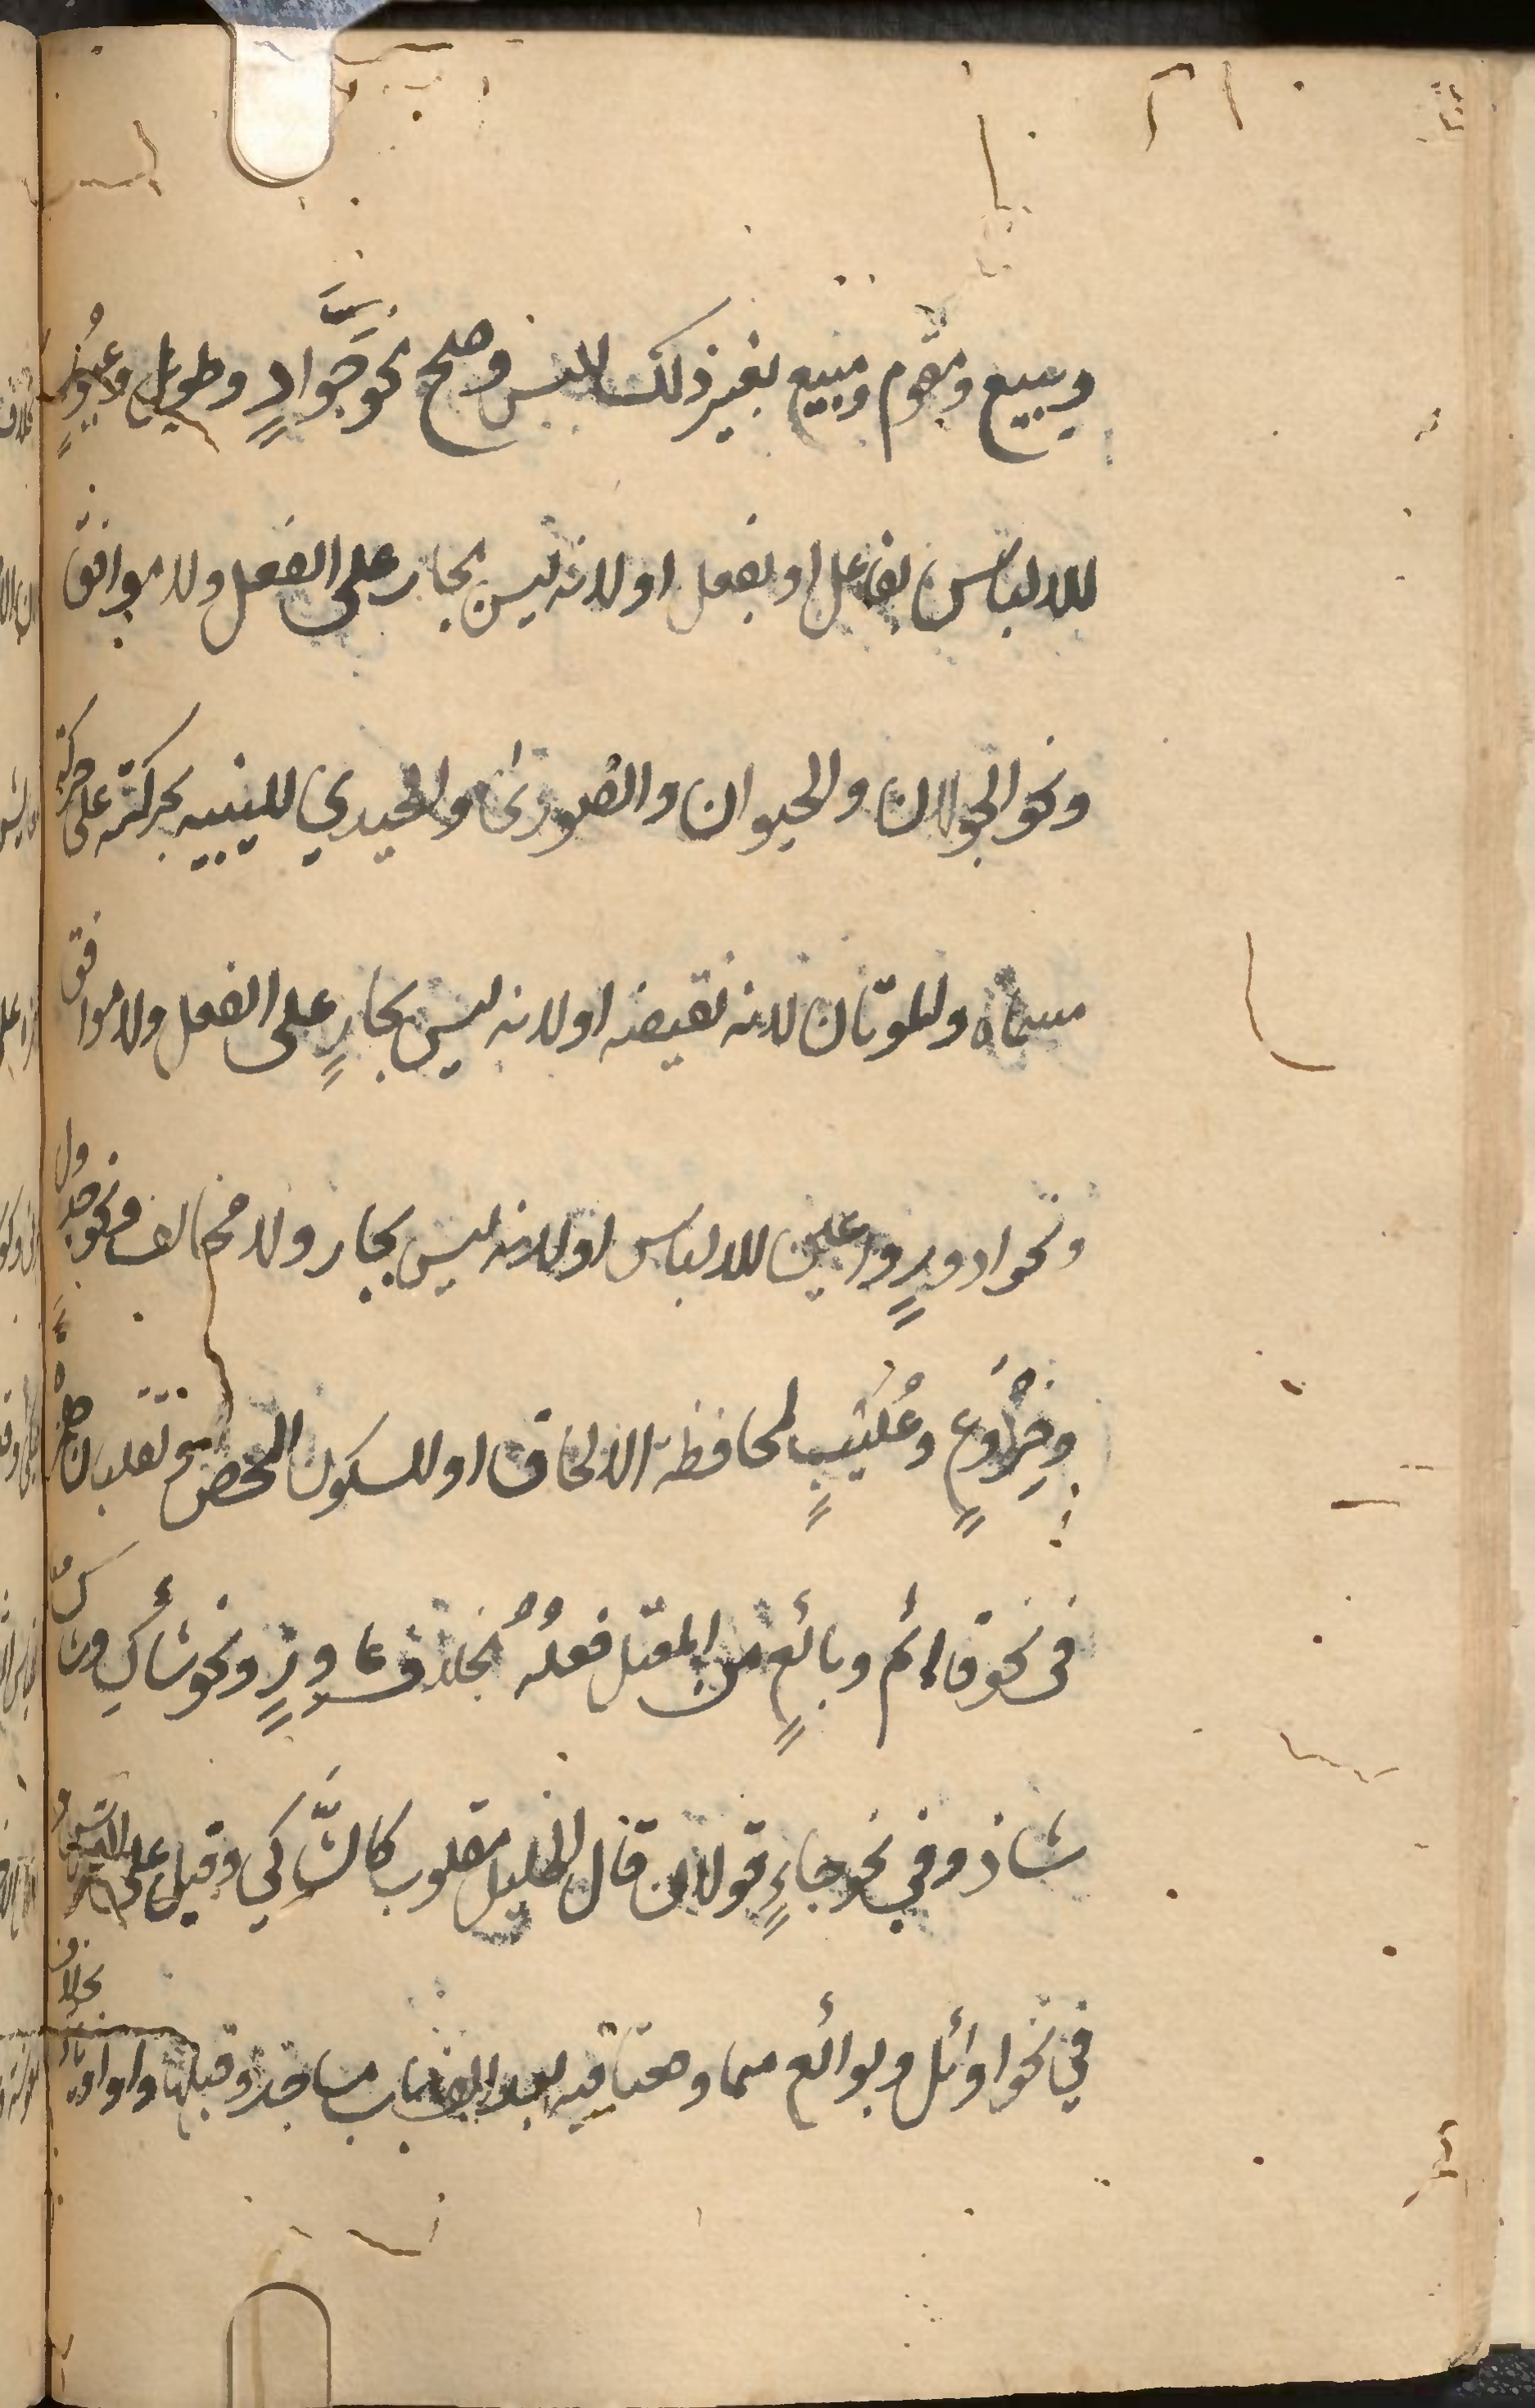 ويبيع ومقوم ومبيع بغير ذلك للبس وصح نحو جَوَادٍ وطويل وغيُورٍ
للالباس بفاعل او بفعل او لانه ليس بجار على الفعل ولا موافق
ونحو الجولان والحيوان والصورى والحيدي للتنبيه بحركته على حركة
مسماه والموتان لانه نقيضه او لانه ليس بجارٍ على الفعل ولا موافق
ونحو ادورٍ واعين للالباس او لانه ليس بجار ولا مخالف ونحو جدول
وخِرْوَعٍ وعُلْيَبٍ لمحافظة الالحاق او للسكون المحض وتقلبان همزة
فى نحو قائم وبائعٍ من المعتل فعلُهُ بخلاف عاورٍ ونحو شاكٍ وشاك
شاذ وفي نحو جاءٍ قولان قال الخليل مقلوب كالشَّاكي وقيل على القياس و
في نحو اوائل وبوائع مما وقعتا فيه بعد الف باب مساجد وقبلها واو او ياء بخلاف